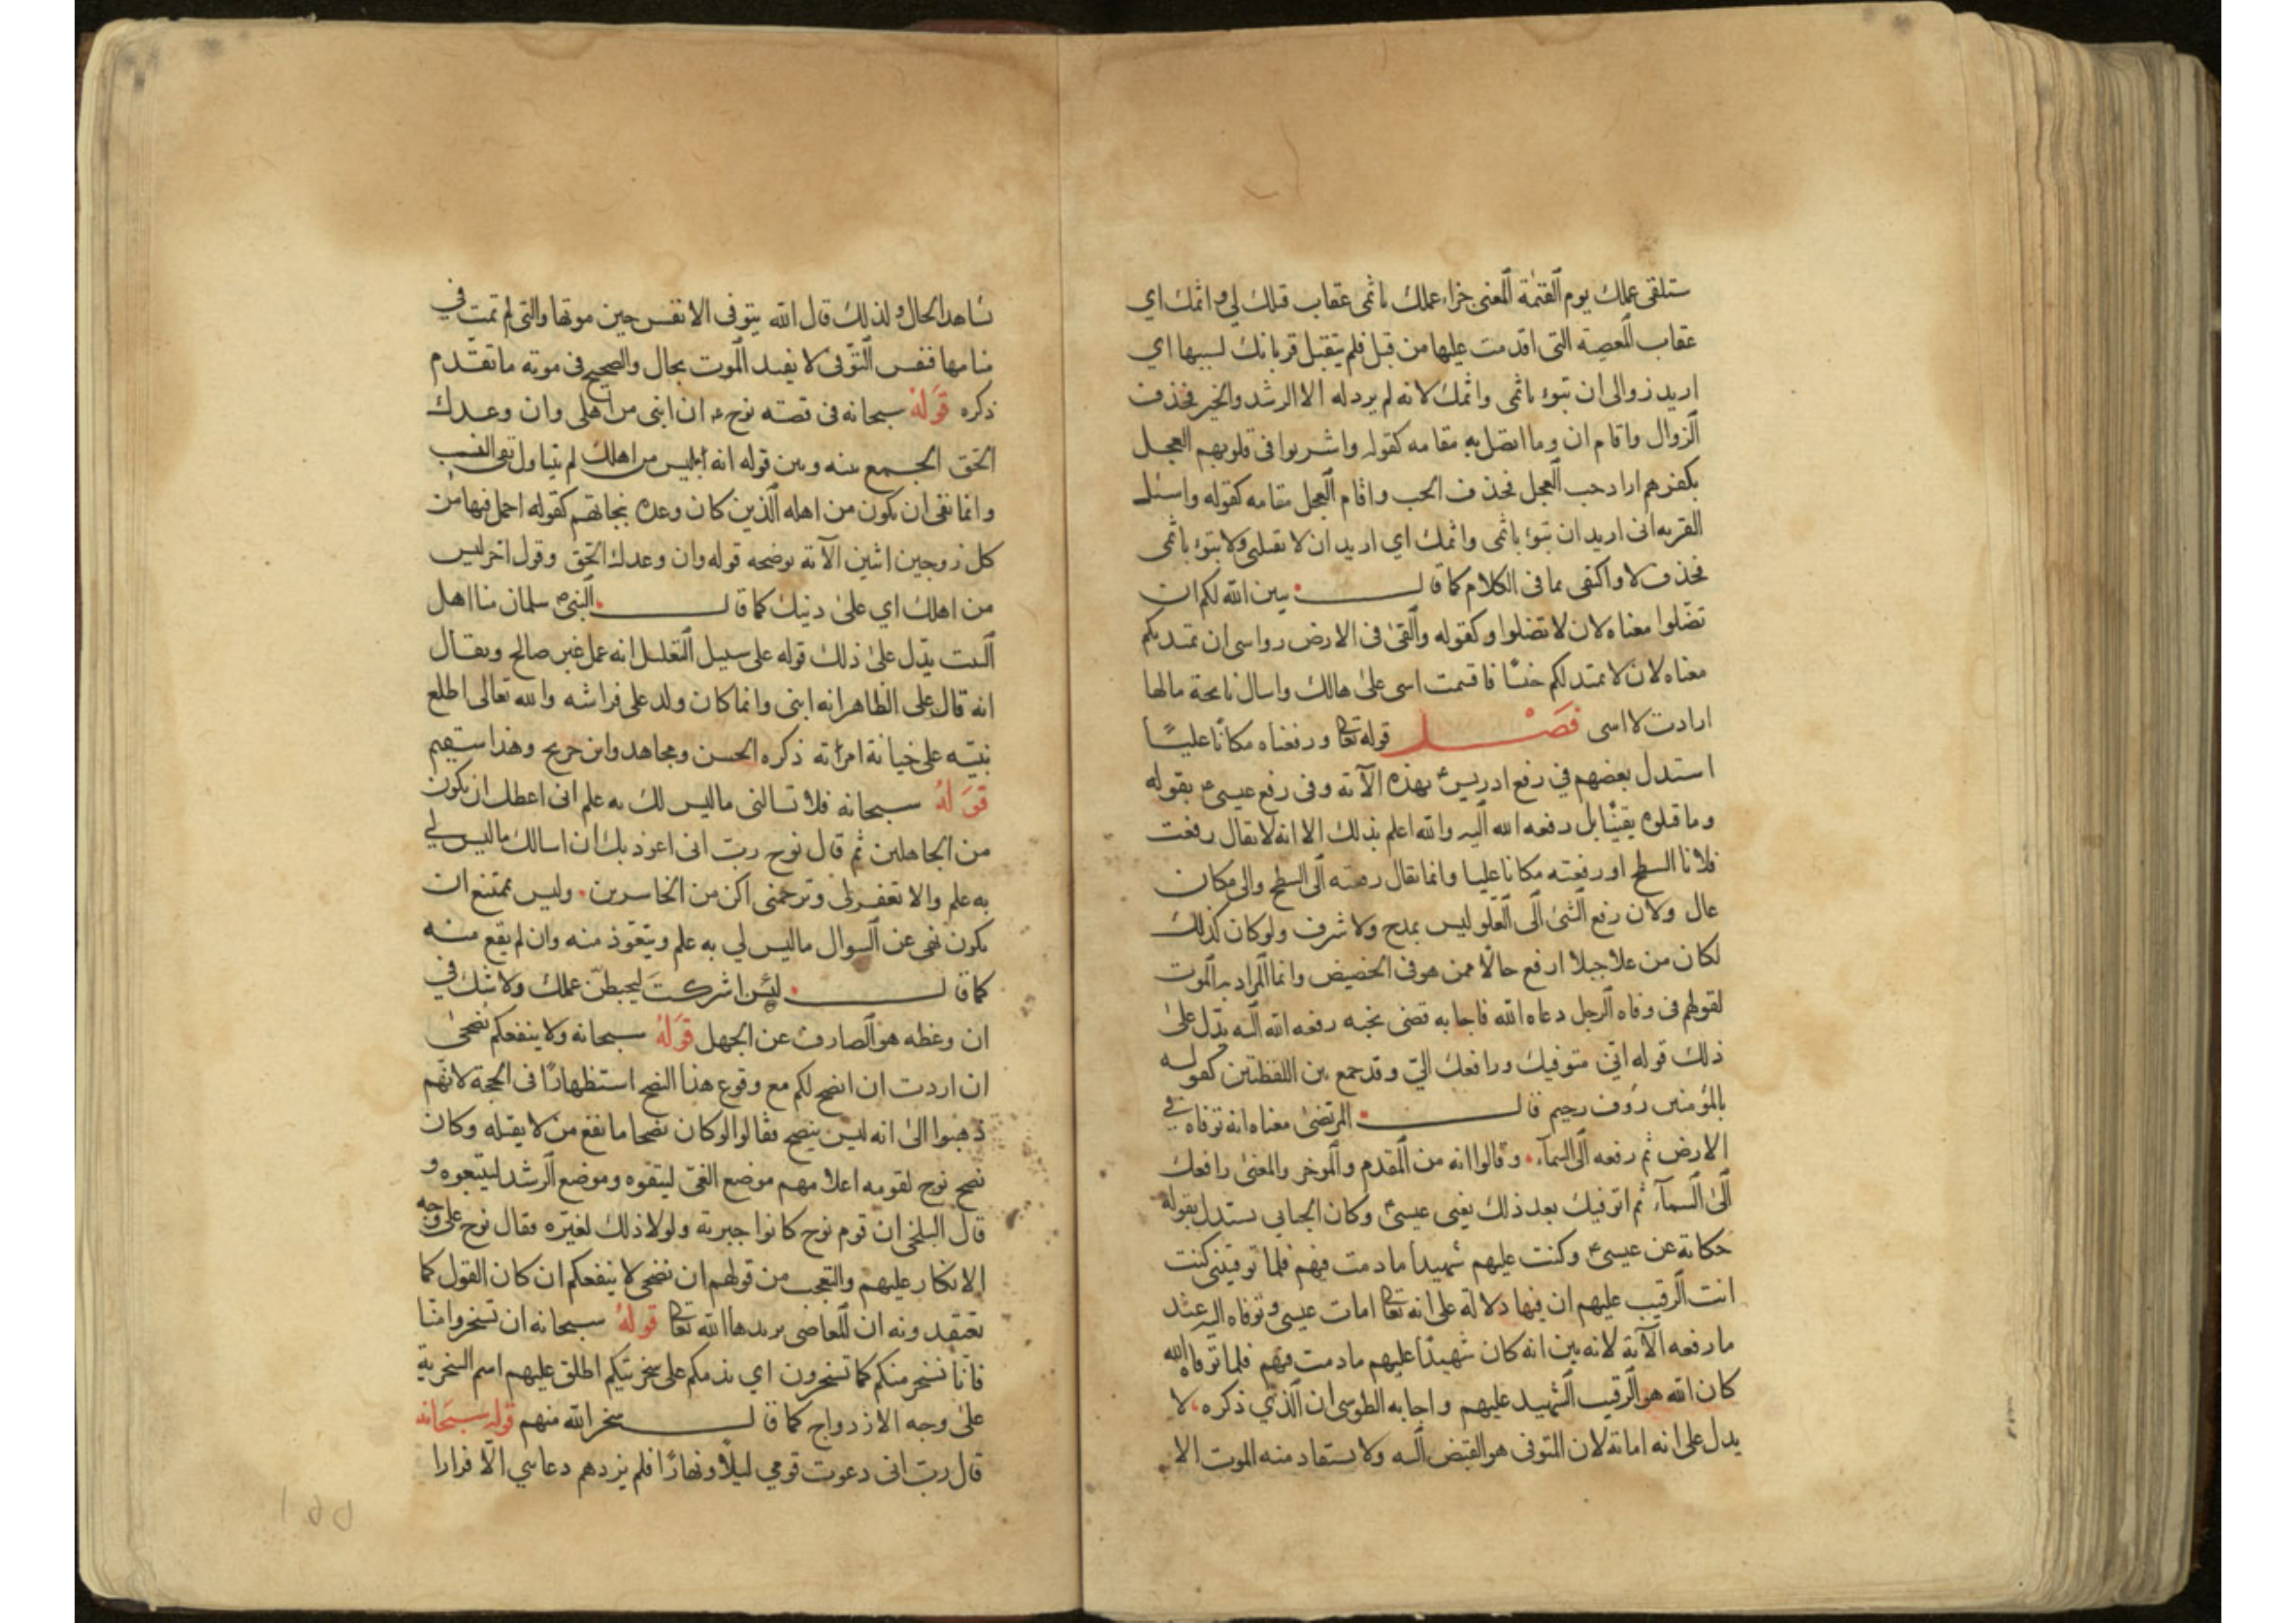 ستلقى عملك يوم القيمة المعنى جزاء عملك باثمى عقاب قتلك لي و اثمك اي
عقاب المعصية التى اقدمت عليها من قبل فلم يتقبل قربانك لسببها اي
اريد زوالى ان تبوء باثمى واثمك لانه لم يرد له الا الرشد والخير فحذف
الزوال واقام ان وما اتصل به مقامه كقوله واشربوا فى قلوبهم العجل
بكفرهم اراد حب العجل فحذف الحب واقام العجل مقامه كقوله واسئل
القرية انى اريد ان تبوء باثمى واثمك اي اريد ان لا تقتلنى ولا تبوء باثمى
فحذف لا واكتفى بما فى الكلام كما قال يبين الله لكم ان
تضلوا معناه لان لا تضلوا وكقوله والقى فى الارض رواسى ان تميد بكم
معناه لان لا تميد لكم خنسا فاقسمت اسى على هالك واسال نايحة مالها
ارادت لا اسى فصل قوله تعا ورفعناه مكانا عليّا
استدل بعضهم في رفع ادريس ع بهذه الآية وفى رفع عيسى ع بقوله
وما قتلوه يقينا بل رفعه الله اليه والله اعلم بذلك الا انه لا يقال رفعت
فلانا السطح او رفعته مكانا عليا وانما يقال رفعته الى السطح والى مكان
عال ولان رفع الشئ الى العلو ليس بمدح ولا شرف ولو كان كذلك
لكان من علا جبلا ارفع حالا ممن هو فى الحضيض وانما المراد به الموت
لقولهم فى وفاه الرجل دعاه الله فاجابه قضى نحبه رفعه الله اليه يدل على
ذلك قوله انى متوفيك ورافعك الىّ وقد جمع بين اللفظتين كقوله
بالمؤمنين رؤف رحيم قال المرتضى معناه انه توفاه في
الارض ثم رفعه الى السمآء وقالوا انه من المقدم والموخر والمعنى رافعك
الى السمآء ثم اتوفيك بعد ذلك يعنى عيسى ع وكان الجبايي يستدل بقوله
حكاية عن عيسى ع وكنت عليهم شهيدا ما دمت فيهم فلما توفيتنى كنت
انت الرقيب عليهم ان فيها دلالة على انه تعا امات عيسى وتوفاه اليه عند
ما رفعه الآية لانه بين انه كان شهيدا عليهم ما دمت فيهم فلما توفاه الله
كان الله هو الرقيب الشهيد عليهم واجابه الطوسى ان الذي ذكره لا
يدل على انه اماته لان المتوفى هو القبض اليه ولا يستفاد منه الموت الا
شاهد الحال ولذلك قال الله يتوفى الانفس حين موتها والتى لم تمت في
منامها فنفس التوفى لا يفيد الموت بحال والصحيح فى موته ما تقدم
ذكره قوله سبحانه فى قصته نوح ع ان ابنى من اهلى وان وعدك
الحق الجمع بينه وبين قوله انه ليس من اهلك لم يتناول نفى النسب
وانما نفى ان يكون من اهله الذين كان وعده بنجاتهم كقوله احمل فيها من
كل زوجين اثنين الآية يوضحه قوله وان وعدك الحق وقول اخر ليس
من اهلك اي على دينك كما قال النبى ع سلمان منا اهل
البيت يدل على ذلك قوله على سبيل التعليل انه عمل غير صالح ويقال
انه قال على الظاهر انه ابنى وانما كان ولد على فراشه والله تعالى اطلع
نبيه على خيانة امراته ذكره الحسن ومجاهد وابن جريح وهذا
قوله سبحانه فلا تسالنى ماليس لك به علم انى اعظك ان يكون
من الجاهلين ثم قال نوح رب انى اعوذ بك ان اسالك ماليس لي
به علم والا تغفر لى وترحمنى اكن من الخاسرين وليس يمتنع ان
يكون نهى عن السوال ماليس لي به علم ويتعوذ منه وان لم يقع منه
كما قال لئن اشركت ليحبطن عملك ولا شك في
ان وعظه هو الصارف عن الجهل قوله سبحانه ولا ينفعكم نصحى
ان اردت ان انصح لكم مع وقوع هذا النصح استظهارا فى الحجة لانهم
ذهبوا الى انه ليس بنصح فقالوا لو كان نصحا ما نفع من لا يقبله وكان
نصح نوح لقومه اعلامهم موضع الغى ليتقوه وموضع الرشد ليتبعوه و
قال البلخى ان قوم نوح كانوا جبرية ولولا ذلك لغيره فقال نوح على وجه
الانكار عليهم والتعجب من قولهم ان نصحى لا ينفعكم ان كان القول كما
تعتقدونه ان المعاصى يريدها الله تعا قوله سبحانه ان تسخروا منا
فانا نسخر منكم كما تسخرون اي نذمكم على سخريتكم اطلق عليهم اسم السخرية
على وجه الازدواج كما قال سخر الله منهم قوله سبحانه
قال رب انى دعوت قومي ليلا ونهارا فلم يزدهم دعاىي الا فرارا